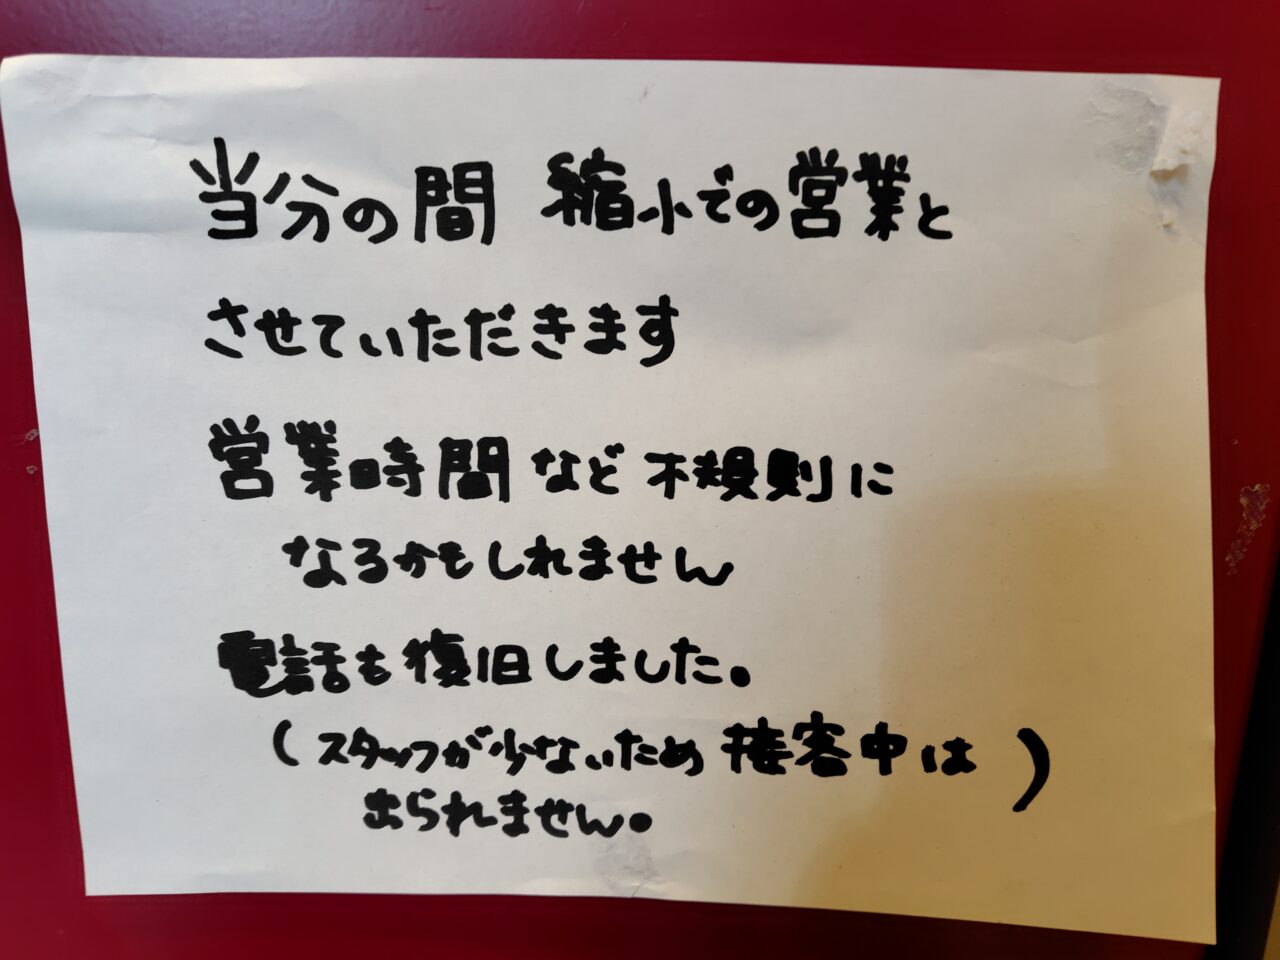 当分の間 縮小での営業と
させていただきます
営業時間など不規則に
なるかもしれません
電話も復旧しました。
(スタッフが少ないため接客中は)
出られません。